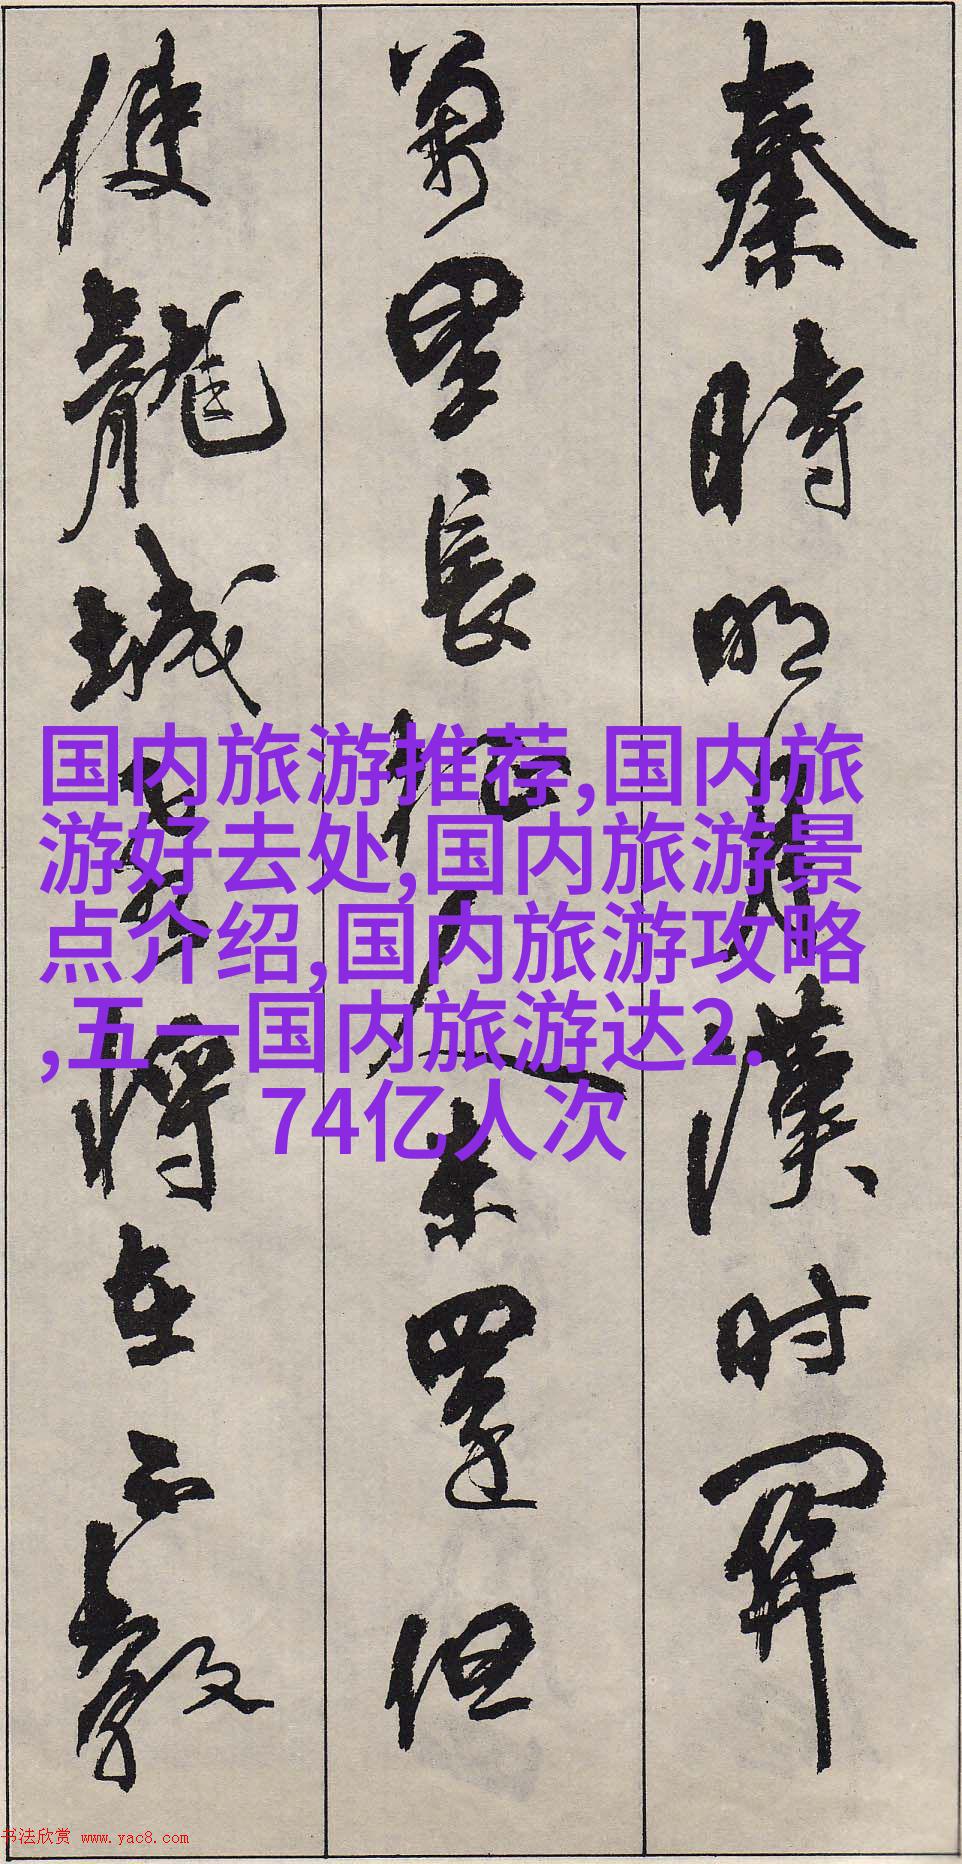 秦時明月漢时關
萬里長征人未還但
使龍城飛將在不教
国内旅游推荐,国内旅
游好去处,国内旅游景
点介绍,国内旅游攻略
,五一国内旅游达2.
74亿人次
书法欣赏 www.yac8.com